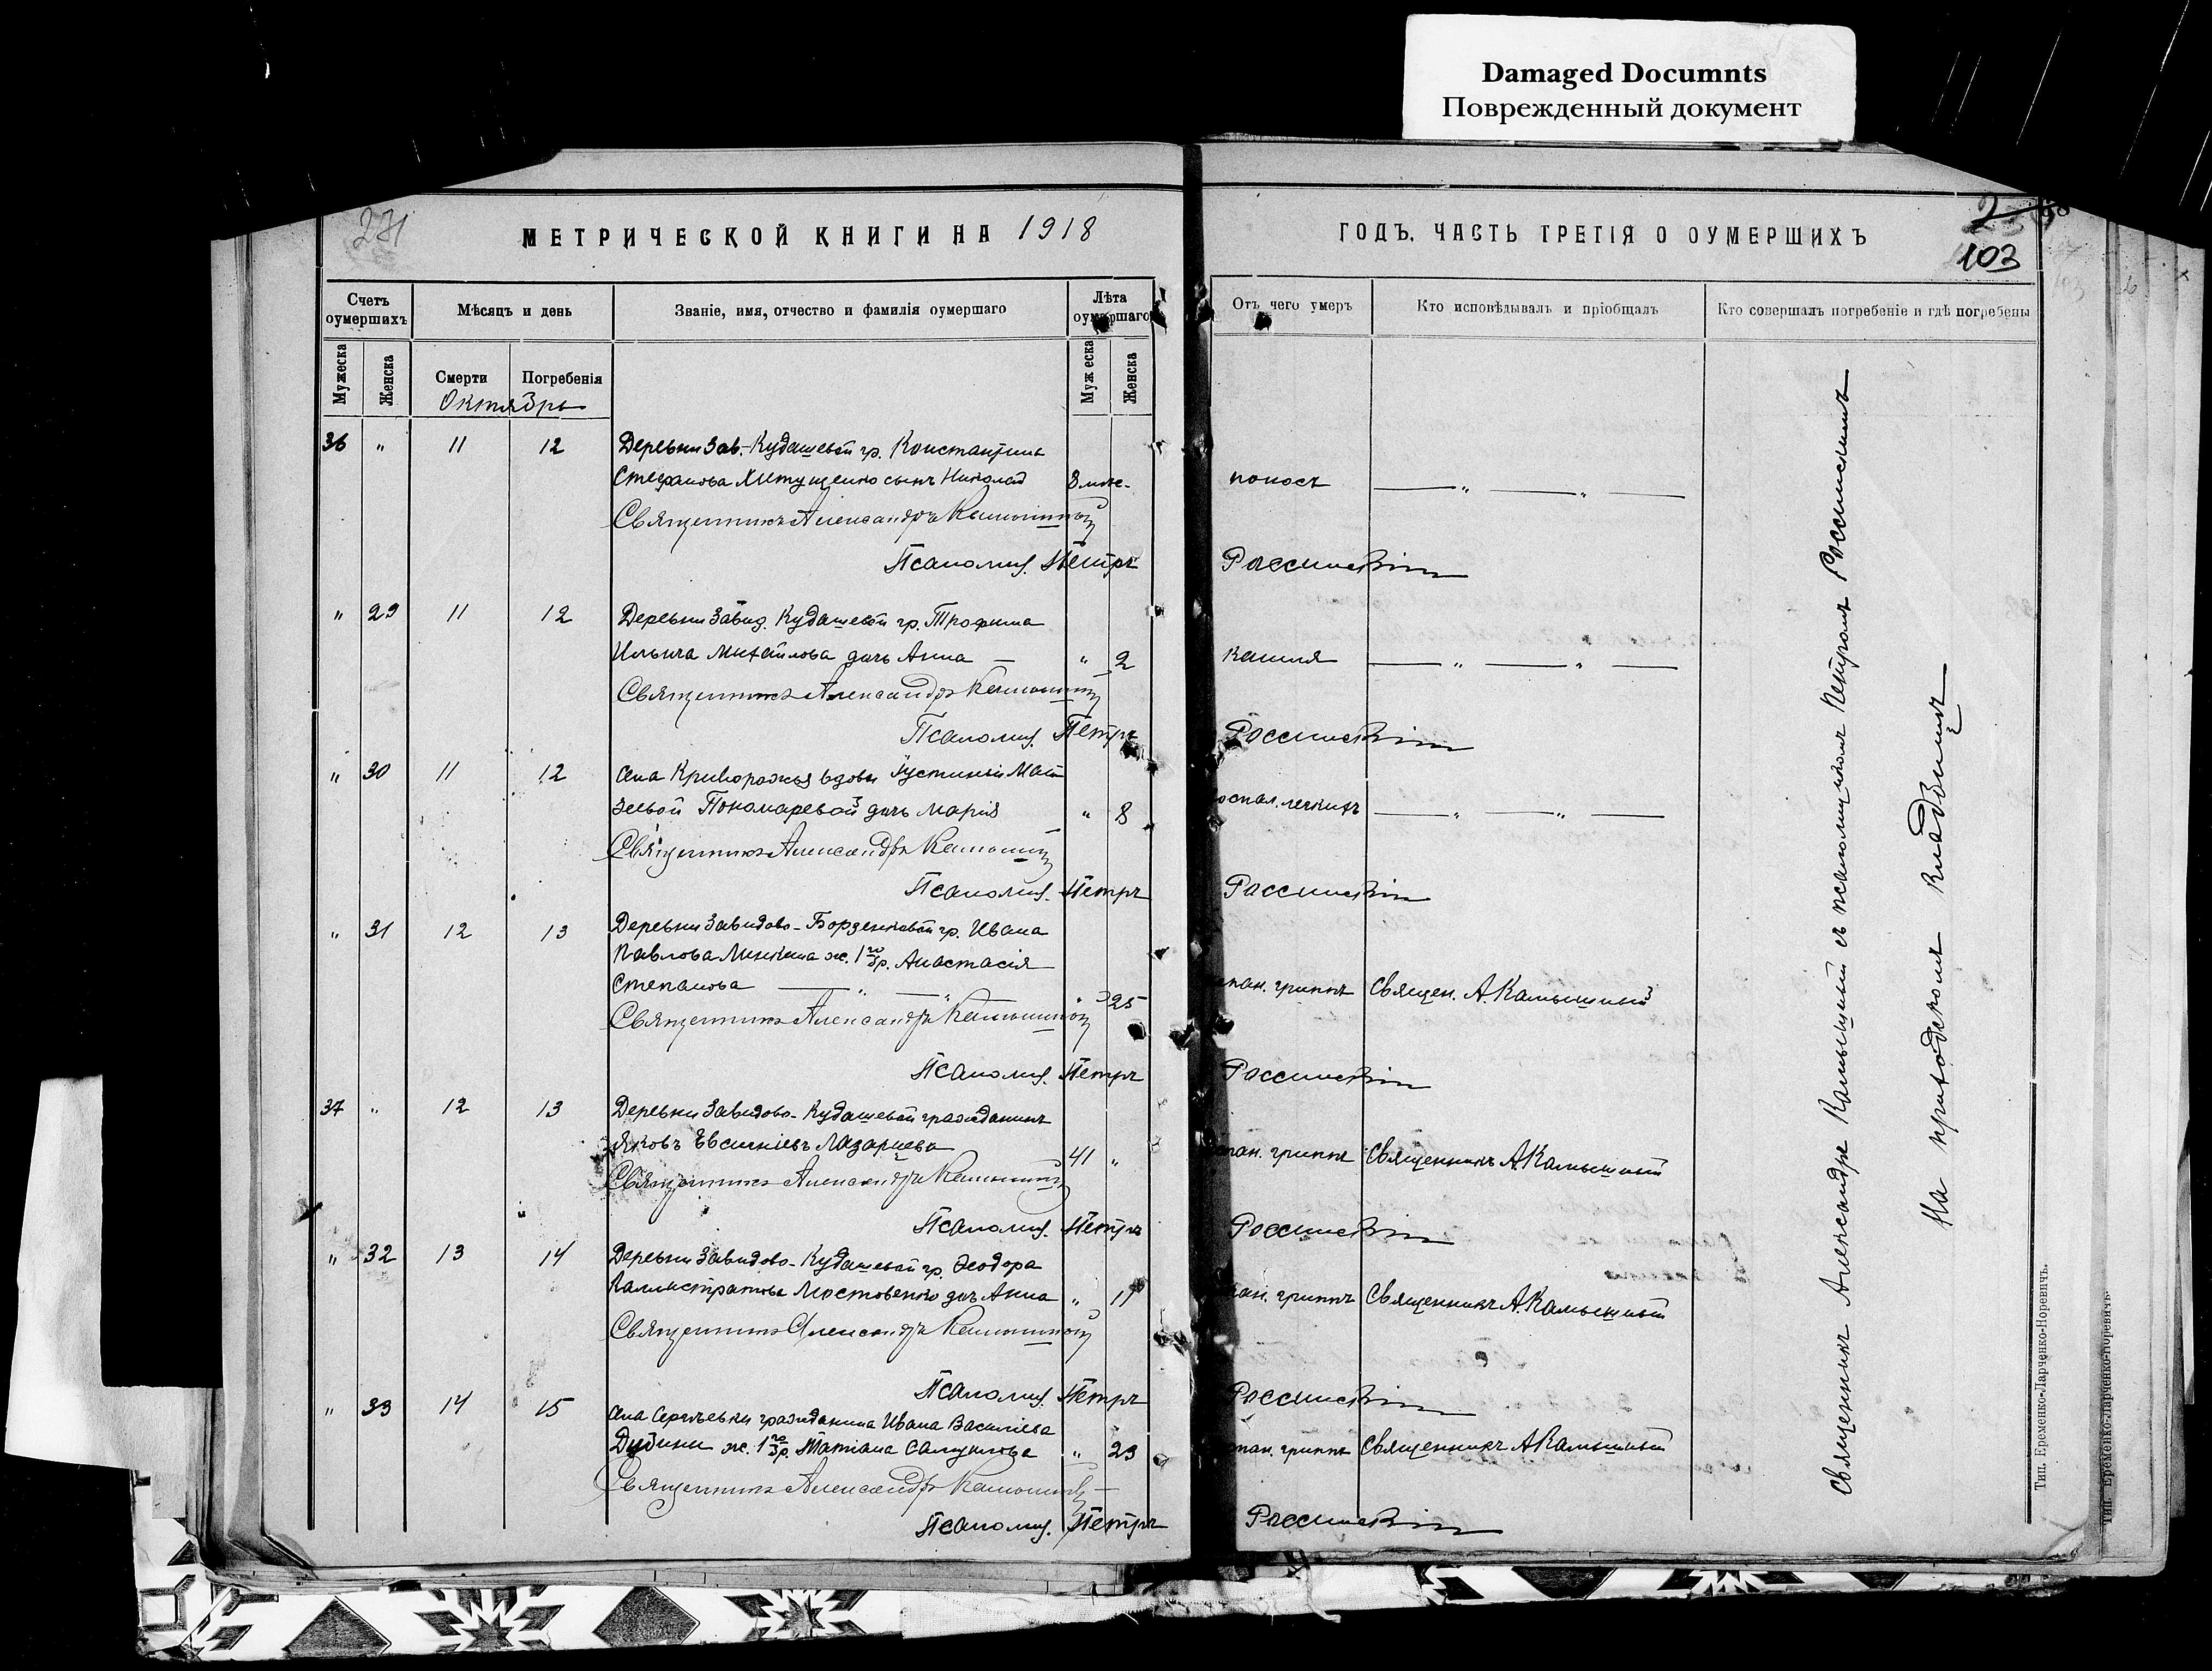 Damaged Documnts
Поврежденный документ
МЕТРИЧЕСКОЙ КНИГИ НА 1918
ГОДЪ. ЧАСТЬ ТРЕТІЯ О ОУМЕРШИХЪ
103
Счетъ оумершихъ
Мѣсяцъ и день
Званіе, имя, отчество и фамилія оумершаго
Лѣта оумершаго
Отъ чего умеръ
Кто исповѣдывалъ и пріобщалъ
Кто совершалъ погребеніе и гдѣ погребены
Мужеска
Женска
Смерти
Погребенія
Мужеска
Женска
Октябрь
36 " 11 12 Деревни Зав.-Кудашевой гр. Константина
Стефанова сынъ Николай 8 мѣс. поносъ — " — " —
Священникъ Александръ Камышный
Псаломщ. Петръ Россинскій
" 29 11 12 Деревни Завид. Кудашевой гр. Трофима
Ильича Михайлова дочь Анна — " 2 кашля — " — " —
Священникъ Александръ Камышный
Псаломщ. Петръ Россинскій
" 30 11 12 села Криворожья вдовы Іустиніи Мат
ѳеевой Пономаревой дочь Марія " 8 воспал. легкихъ — " — " —
Священникъ Александръ Камышный
Псаломщ. Петръ Россинскій
" 31 12 13 Деревни Завидово-Борзенковой гр. Ивана
Павлова ж. 1го бр. Анастасія
Степанова — " — " — " 25 испан. гриппъ Священ. А. Камышный
Священникъ Александръ Камышный
Псаломщ. Петръ Россинскій
37 " 12 13 Деревни Завидово-Кудашевой гражданинъ
Яковъ Евсигніевъ Лазарцевъ 41 " испан. гриппъ Священникъ А. Камышный
Священникъ Александръ Камышный
Псаломщ. Петръ Россинскій
" 32 13 14 Деревни Завидово-Кудашевой гр. Ѳеодора
Каллистратова Мостовенко дочь Анна " испан. гриппъ Священникъ А. Камышный
Священникъ Александръ Камышный
Псаломщ. Петръ Россинскій
" 33 14 15 села Сергѣевки гражданина Ивана Васильева
Дубины ж. 1го бр. Татіана " 23 испан. гриппъ Священникъ А. Камышный
Священникъ Александръ Камышный
Псаломщ. Петръ Россинскій
Священникъ Александръ Камышный съ псаломщикомъ Петромъ Россинскимъ
На приходскомъ кладбищѣ
Тип. Еременко-Ларченко-Норевичъ.
Тип. Еременко-Ларченко-Норевичъ.